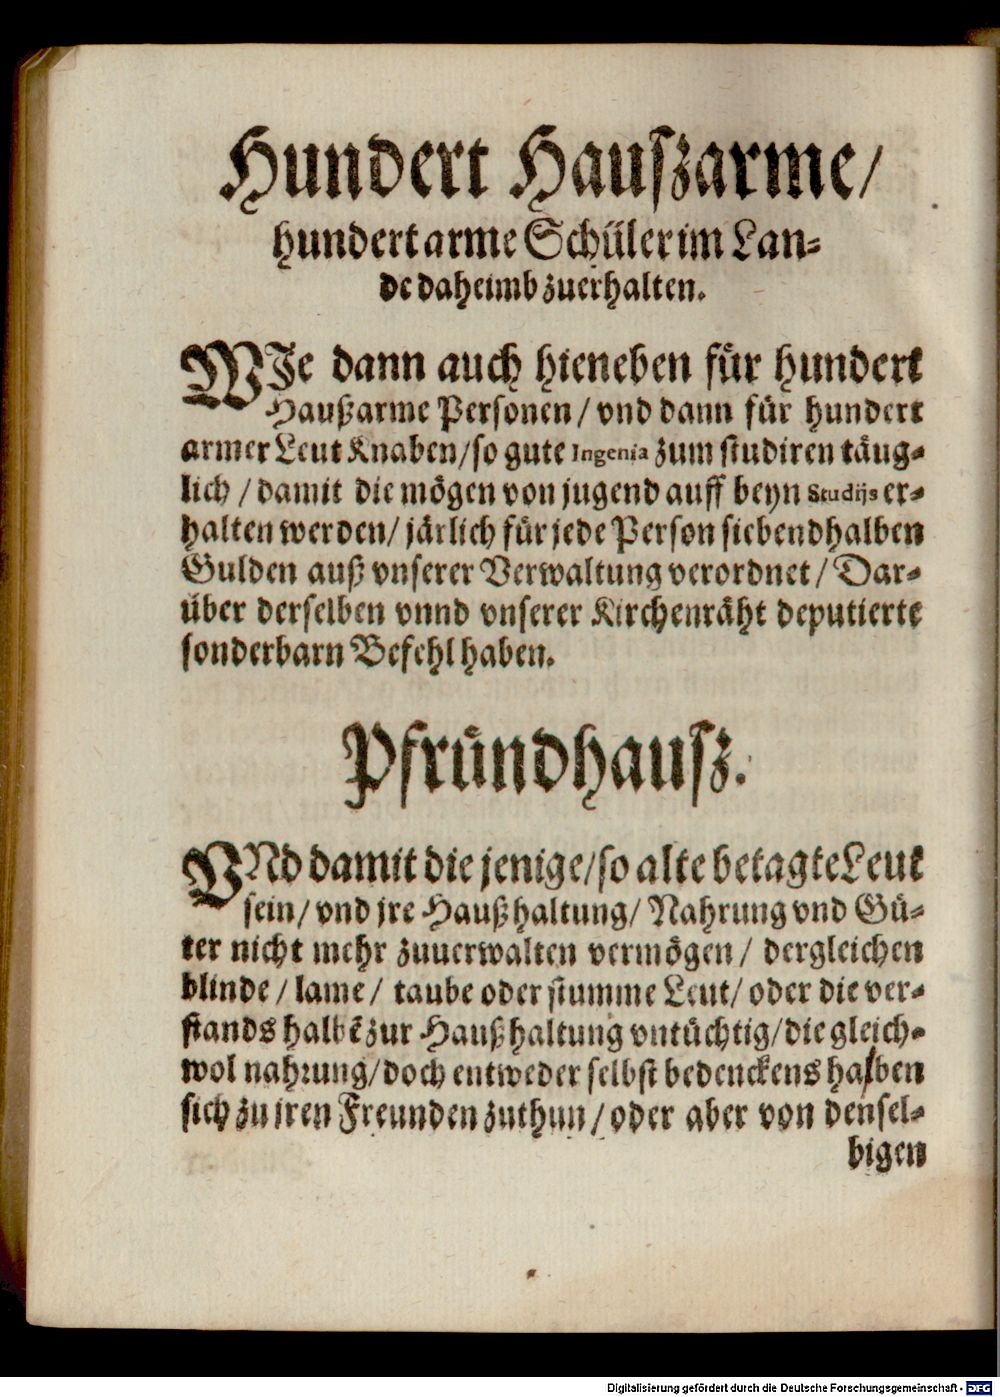 Hundert Hauszarme/
hundert arme Schüler im Lan-
de daheimb zuerhalten.
WJe dann auch hieneben für hundert
Haußarme Personen/ vnd dann für hundert
armer Leut Knaben/ so gute Ingenia zum studiren täug-
lich / damit die mögen von jugend auff beyn Studijs er-
halten werden/ järlich für jede Person siebendhalben
Gulden auß vnserer Verwaltung verordnet / Dar-
über derselben vnnd vnserer Kirchenräht deputierte
sonderbarn Befehl haben.
Pfründhausz.
VNd damit die jenige/ so alte betagte Leut
sein/ vnd jre Haußhaltung/ Nahrung vnd Gü-
ter nicht mehr zuuerwalten vermögen / dergleichen
blinde / lame / taube oder stumme Leut/ oder die ver-
stands halbẽ zur Haußhaltung vntüchtig/ die gleich-
wol nahrung/ doch entweder selbst bedenckens halben
sich zu jren Freunden zuthun / oder aber von densel-
bigen
Digitalisierung gefördert durch die Deutsche Forschungsgemeinschaft - DFG